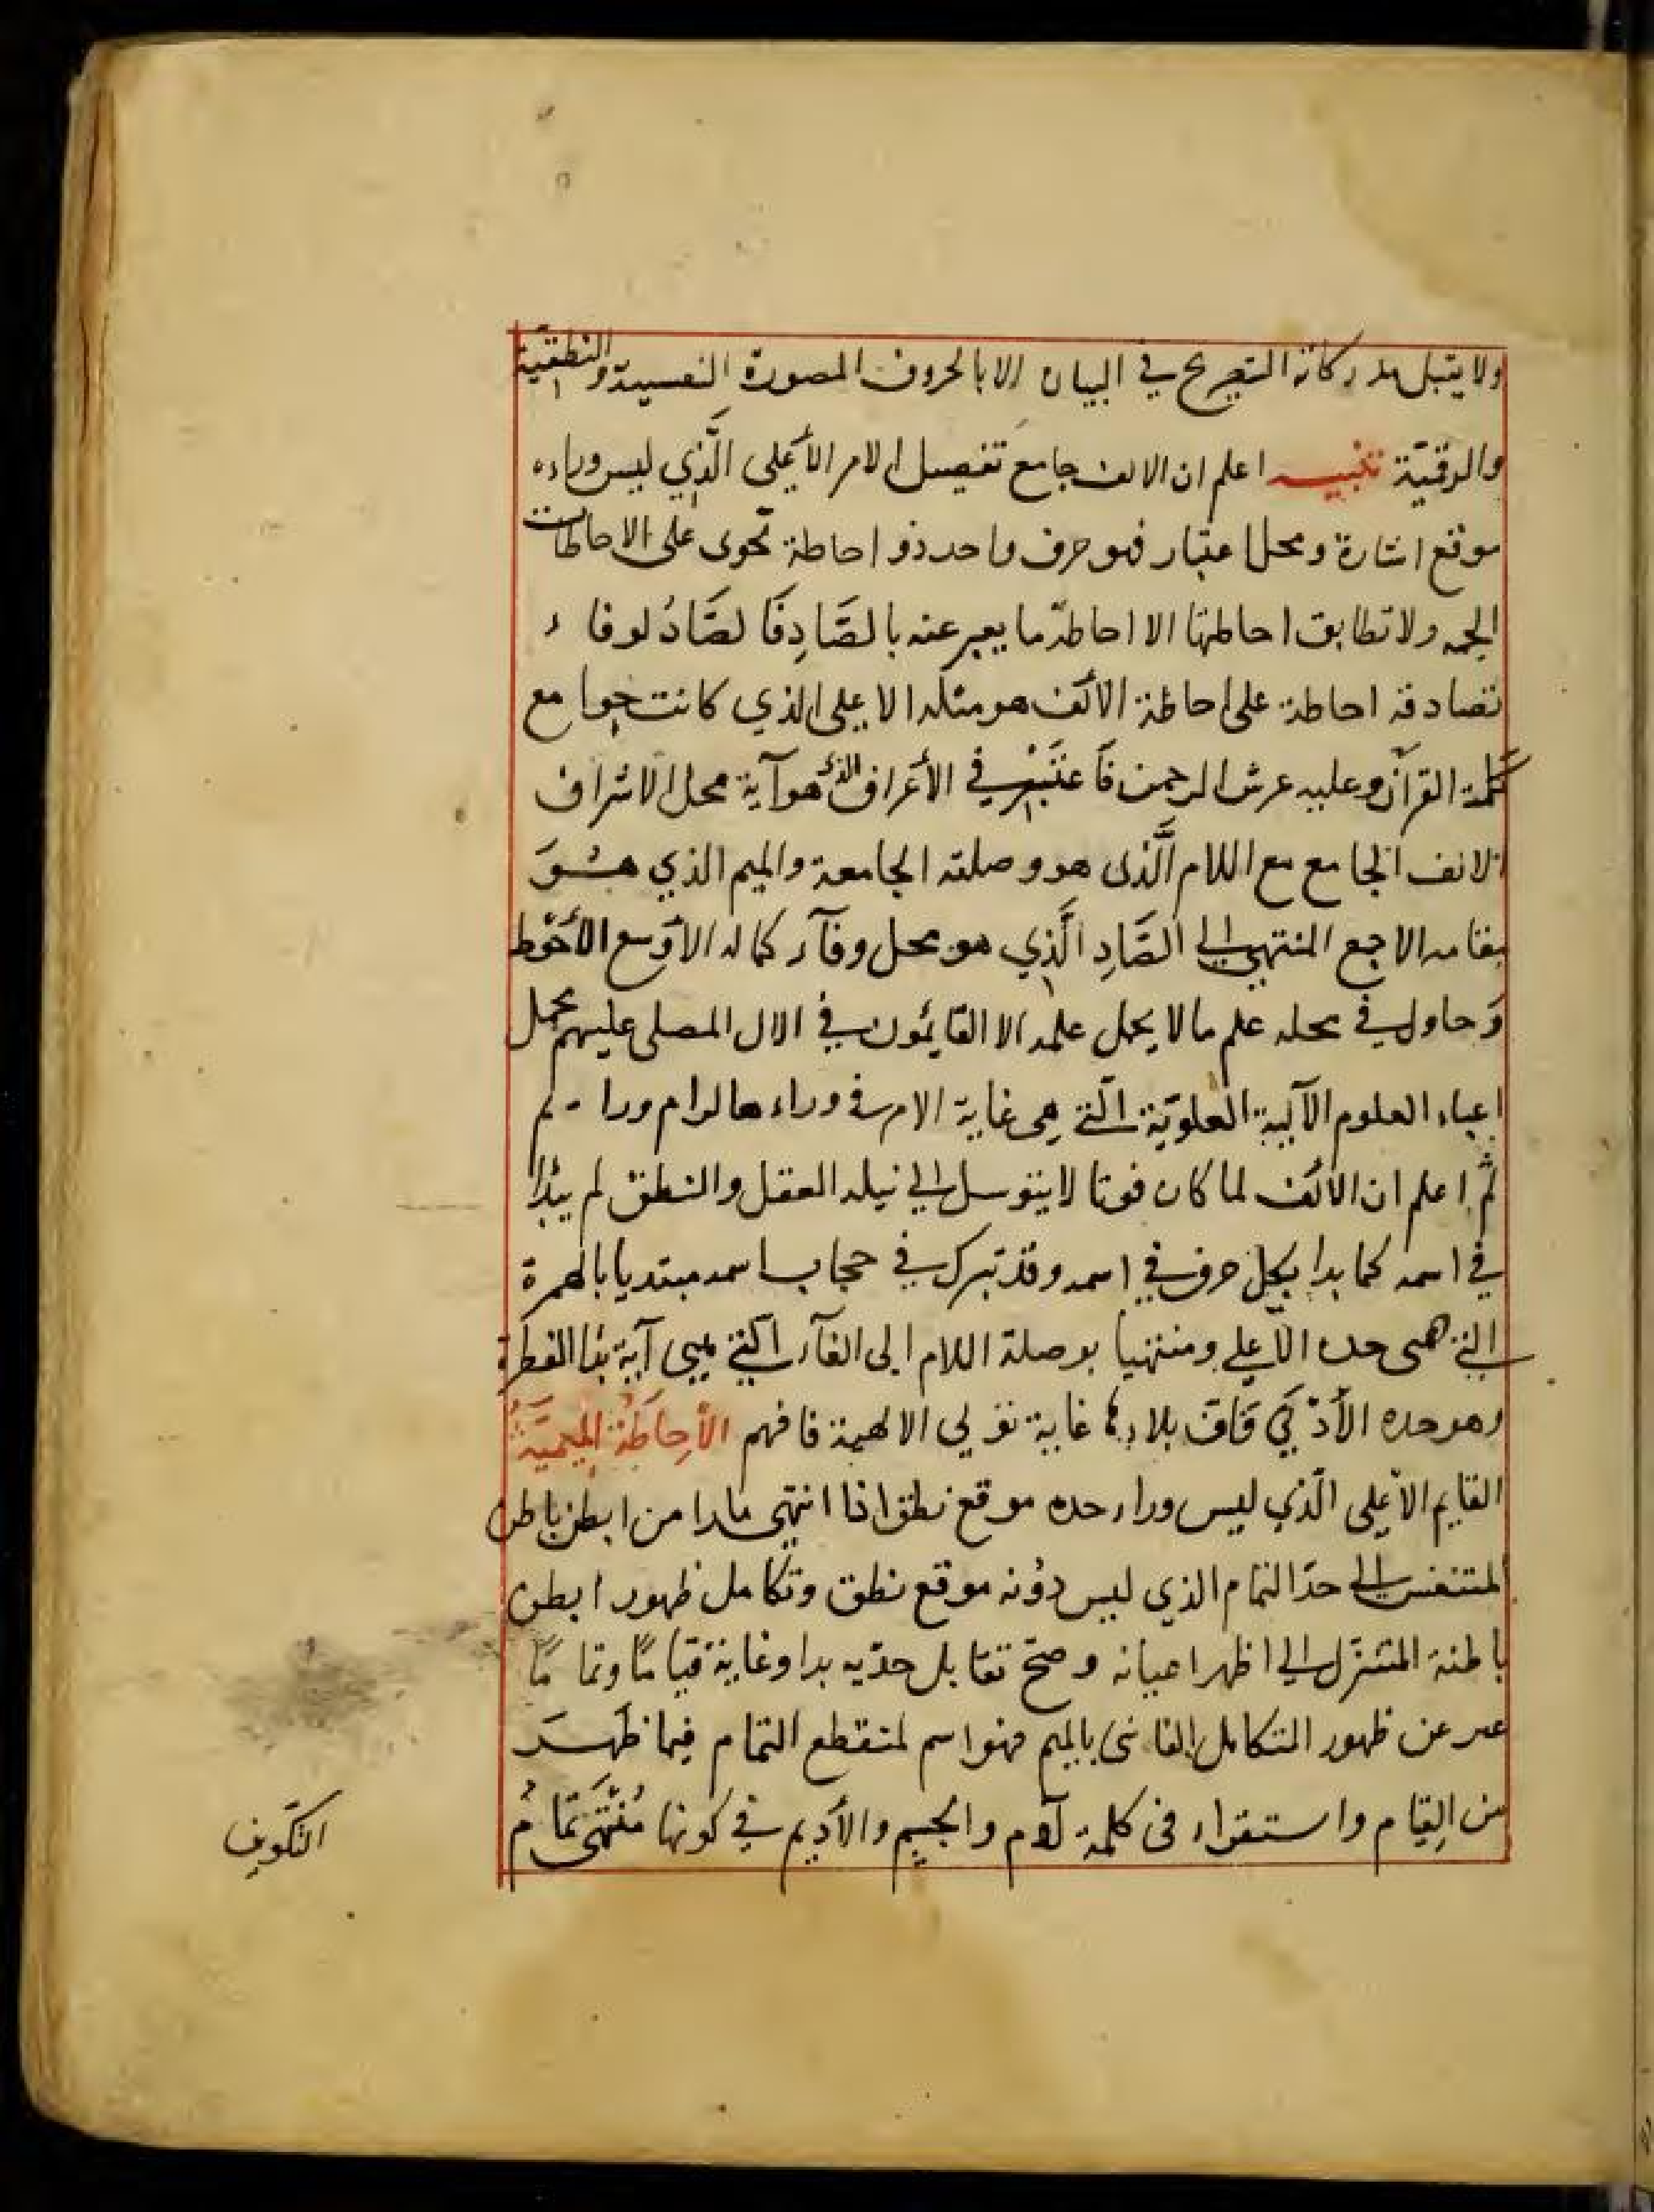 ولا يقبل مدركاته التصريح في البيان الا بالحروف المصورة النفسية والنطقية
والرقمية تنبيه اعلم ان الالف جامع تفصيل الامر الأعلى الَّذي ليس وراءه
موقع اشارة ومحل اعتبار فهو حرف واحد ذو احاطة تحوى على الاحاطات
الجمه ولا تطابق احاطتها الا احاطة ما يعبر عنه بالصَّادِ فَالصَّادُ لوفاء
تصادقه احاطة على احاطة الألف هو مثله الاعلى الذي كانت جوامع
كلمة القرآن وعليه عرش الرحمن فَاعتَبِر في الأعراف الذي هو آية محل الاشراف
الالف الجامع مع اللام الَّذى هو وصلته الجامعة والميم الذي هـو
مقامه الاجمع المنتهي الى الصَّادِ الَّذِي هو محل وفآء كماله الأوسع الأحْوط
وَحاول في محله علم مالا يحمل علمه الا القايمُون في الال المصلى عليهم محمل
اعباء العلوم الآلية العلويّة الَّتي هى غاية الامر في وراءها لمرام ورا
ثُم اعلم ان الألف لما كان فوتا لا يتوسل الى نيله العقل والنطق لم يبْدأ
في اسمه كما بدا بكل حرف في اسمه وقد تبرك في حجاب اسمه مبتديا بالهمزة
الَّتي هى حده الاعلى ومنتهيا بوصلة اللام الى الفآء الَّتي هي آية بدا الفطرة
وهو حده الأدْنَى غاية الالهية فافهم الأحَاطَةُ المِيمِيَّةُ
القايم الأعلى الَّذي ليس وراء حده موقع نطق اذا انتهى مادا من ابطن باطن
المتنفس الى حدّ التمام الذي ليس دُونه موقع نطق وتكامل ظهور ابطن
باطنة المتنزل الى اظهر اعيانه وصحّ تقابل حدّيه بدا وغاية قيامًا وتمامًا
عبر عن ظهور المتكامل بالميم فهو اسم لمتقطع التمام فيما ظَهَـرَ
من القِيام واستقراء فى كلمة آدم والجسم والأديم في كونها مُنْتَهَى تَمَامُ
التكوين